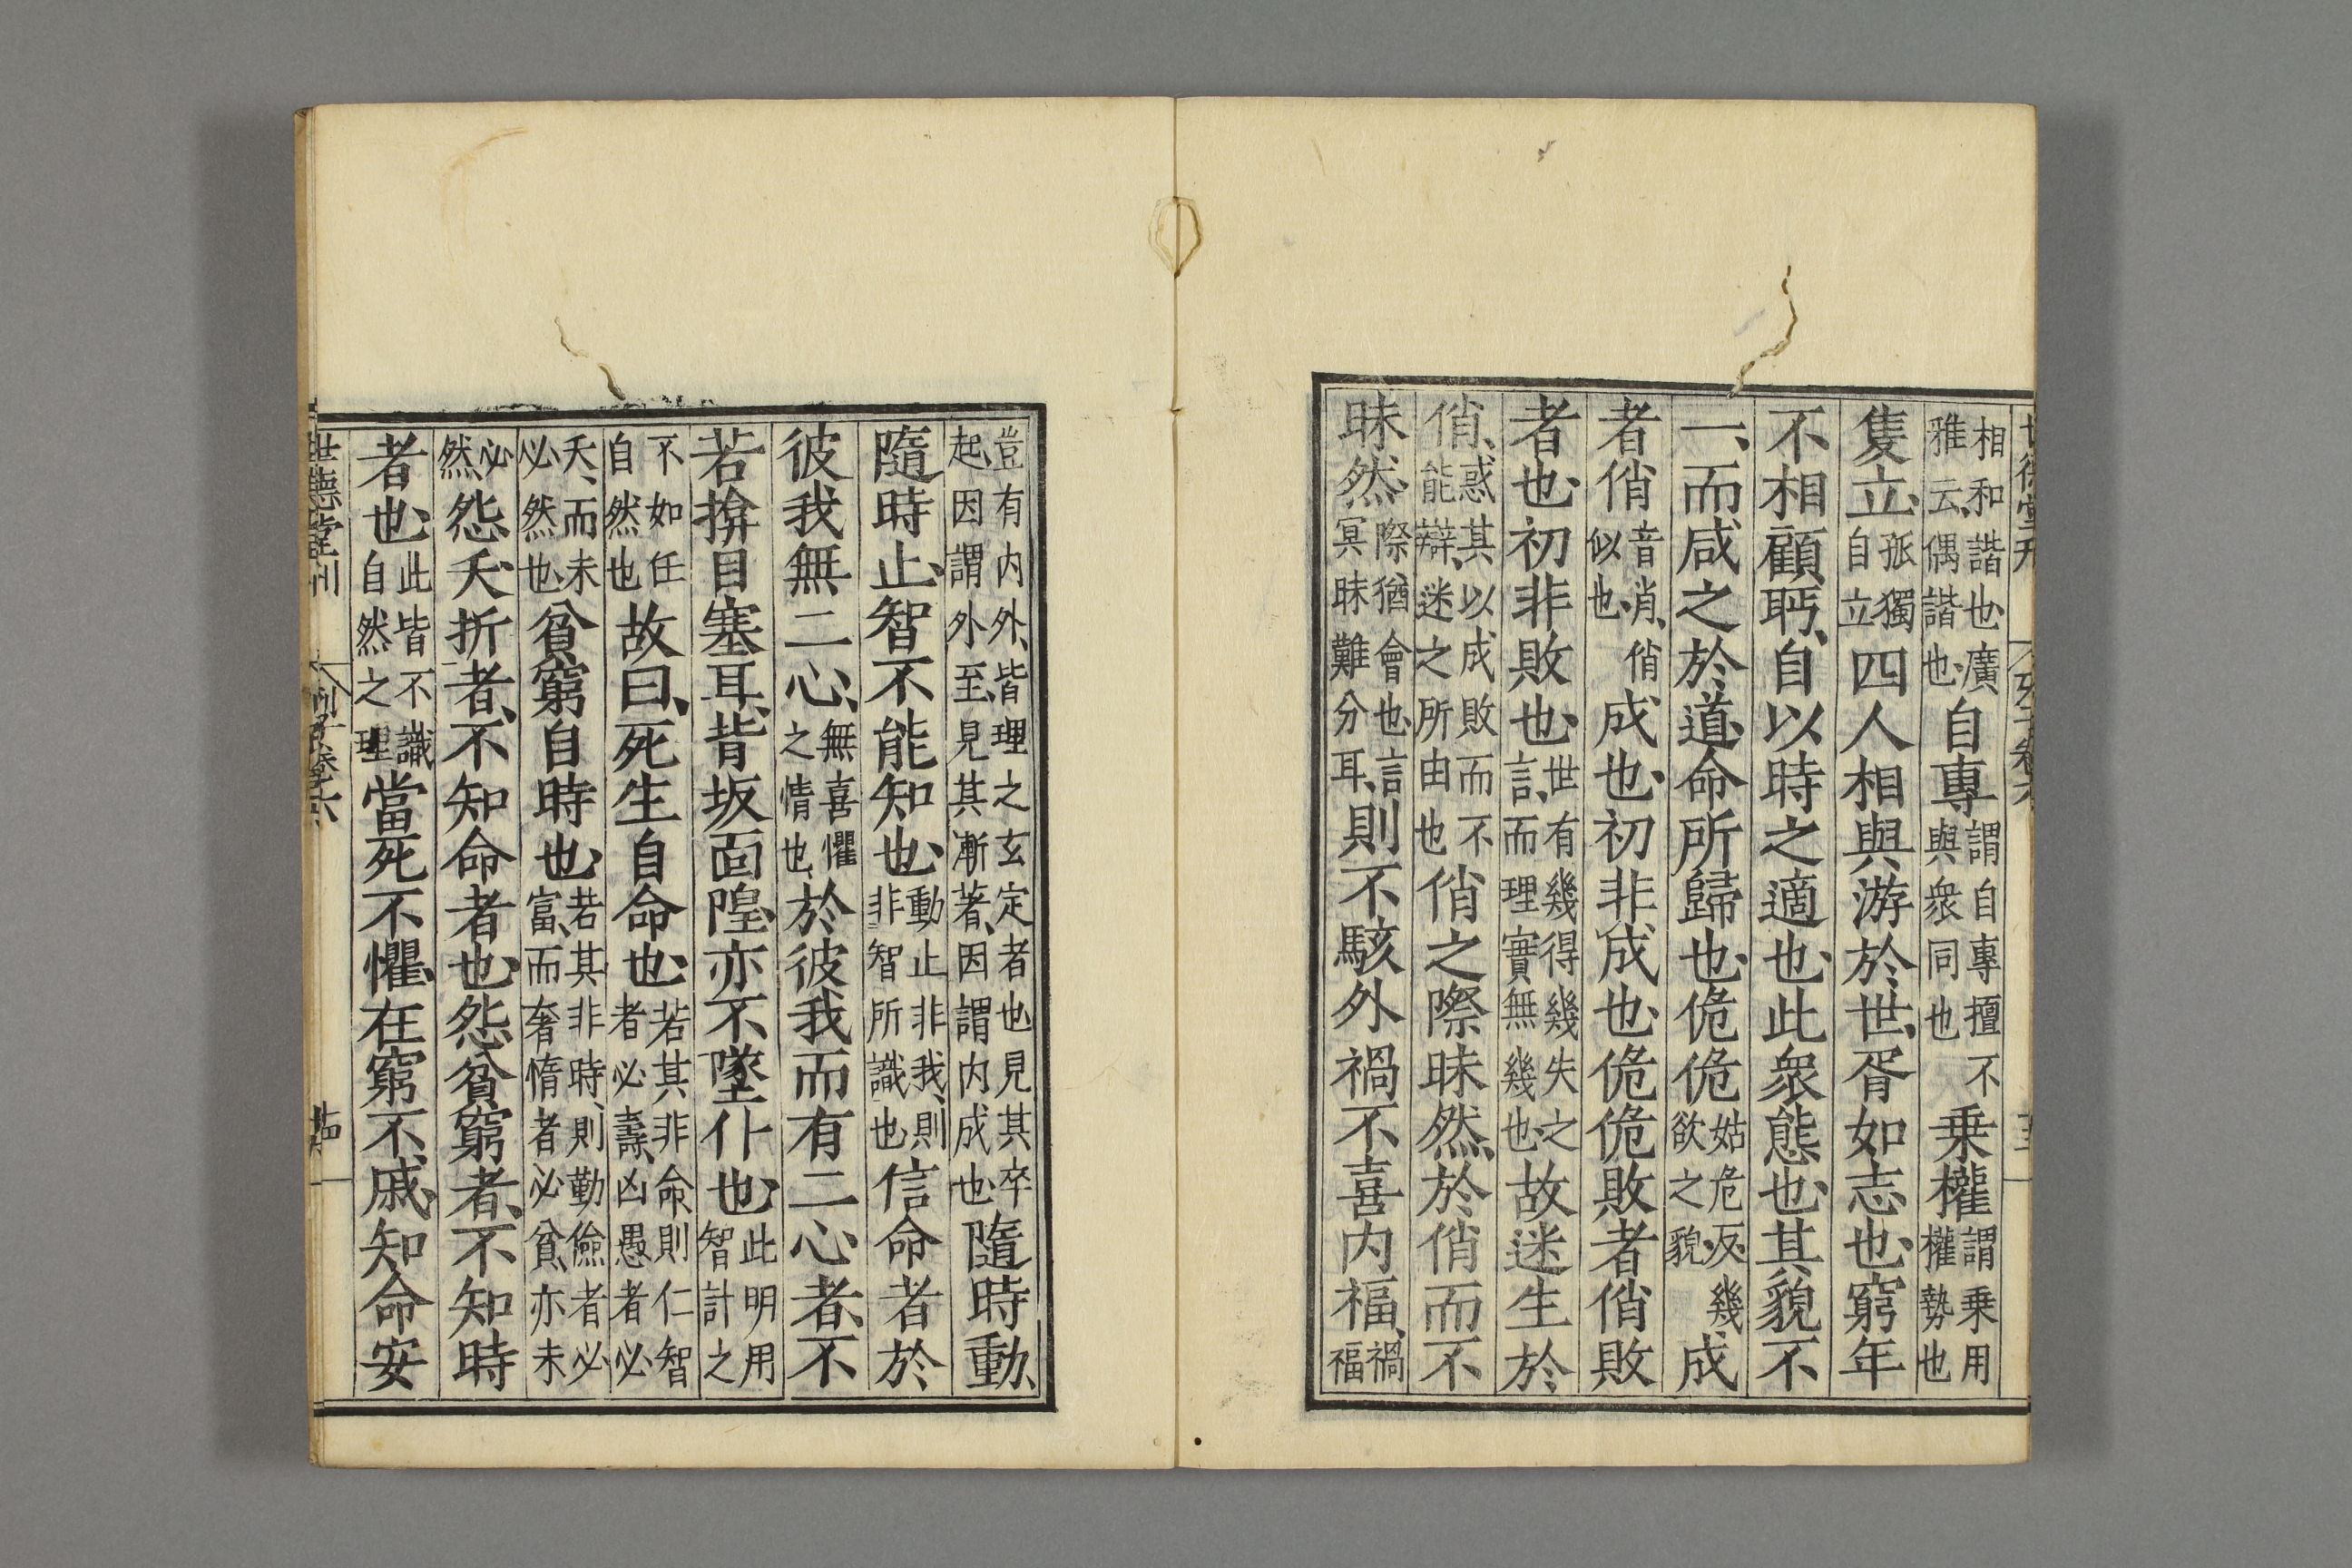 相和諧也廣雅云偶諧也自專謂自專擅不與衆同也乗權謂乗用權勢也
隻立孤獨自立四人相與游於世胥如志也窮年
不相顧眄自以時之適也此衆態也其貌不
一而咸之於道命所歸也佹佹姑危反幾欲之貌成
者俏音肖俏似也成也初非成也佹佹敗者俏敗
者也初非敗也世有幾得幾失之言而理實無幾也故迷生於
俏惑其以成敗而不能辯迷之所由也俏之際昧然於俏而不
昧然際猶會也言冥昧難分耳則不駭外禍不喜内福禍福
豈有内外皆理之玄定者也見其卒起因謂外至見其漸著因謂内成也隨時動
隨時止智不能知也動止非我則非智所識也信命者於
彼我無二心無喜懼之情也於彼我而有二心者不
若揜目塞耳背坂面隍亦不墜仆也此明用智計之
不如任自然也故曰死生自命也若其非命則仁智者必壽凶愚者必
夭而未必然也貧窮自時也若其非時則勤儉者必富而奢惰者必貧亦未
必然怨夭折者不知命者也怨貧窮者不知時
者也此皆不識自然之理當死不懼在窮不戚知命安
世德堂刊 列子卷六